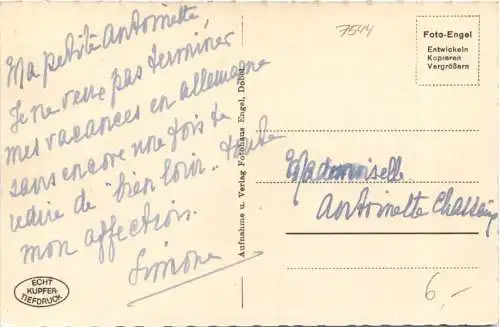 Ma petite Antoinette,
Je ne veux pas terminer
mes vacances en allemagne
sans encore une fois te
redire de "bien loin" toute
mon affection.
Simone
ECHT
KUPFER-
TIEFDRUCK
Aufnahme u. Verlag Fotohaus Engel, Dobel
7544
Foto-Engel
Entwickeln
Kopieren
Vergrößern
Mademoiselle
Antoinette Chassaing
6,-